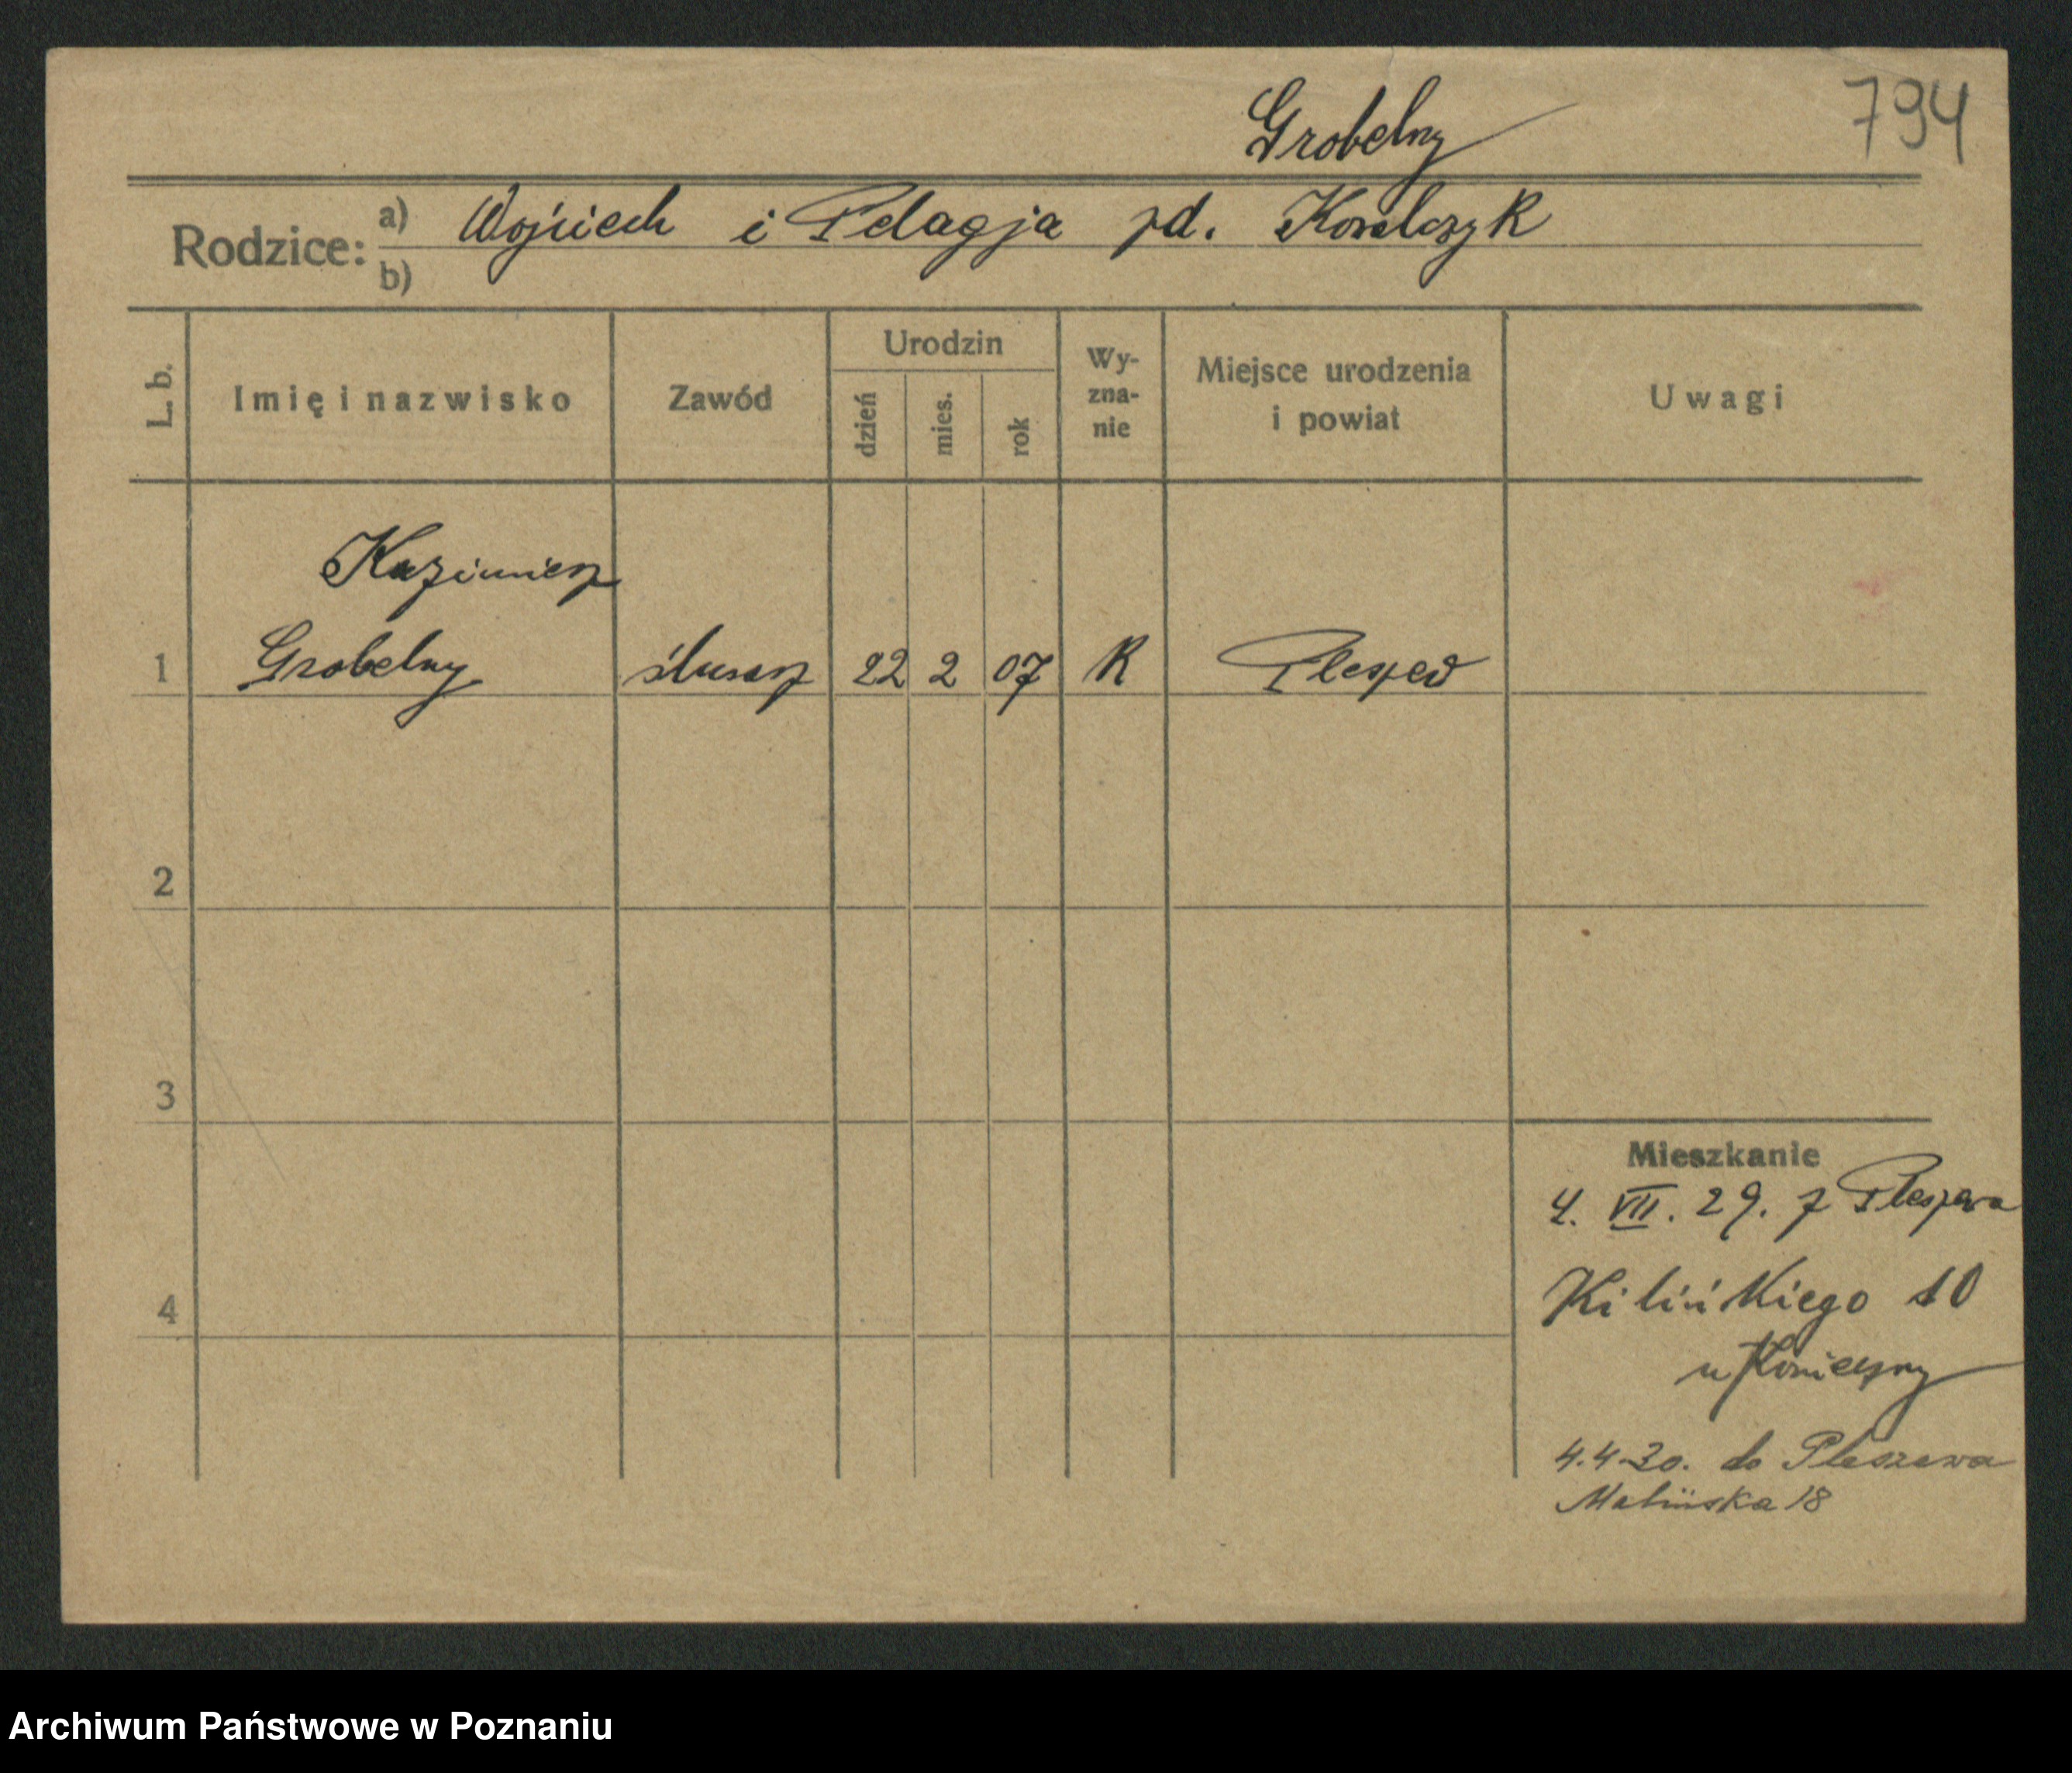 794
Grobelny
Rodzice: a) Wojciech i Pelagja zd. Kowalczyk
b)
L. b. Imię i nazwisko Zawód Urodzin dzień mies. rok Wyznanie Miejsce urodzenia i powiat Uwagi
Kazimierz
1 Grobelny ślusarz 22 2 07 K Pleszew
2
3
Mieszkanie
4. VII. 29. z Pleszewa
Kilińskiego 10
4
u Konieczny
4.4-30. do Pleszewa
Malińska 18
Archiwum Państwowe w Poznaniu